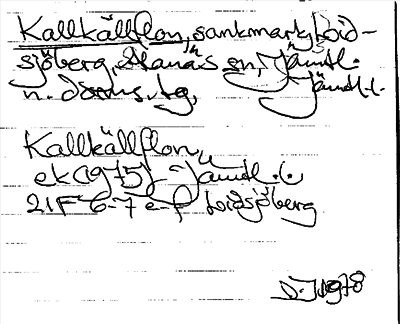 Kallkällflon, sankmark, Loid-
sjöberg, Alanäs sn, Jämtl.
n. doms.,
Jämtl.l.
Kallkällflon,
ek (1975) Jämtl.l.
21F 6-7 e-f Loidsjöberg
1978